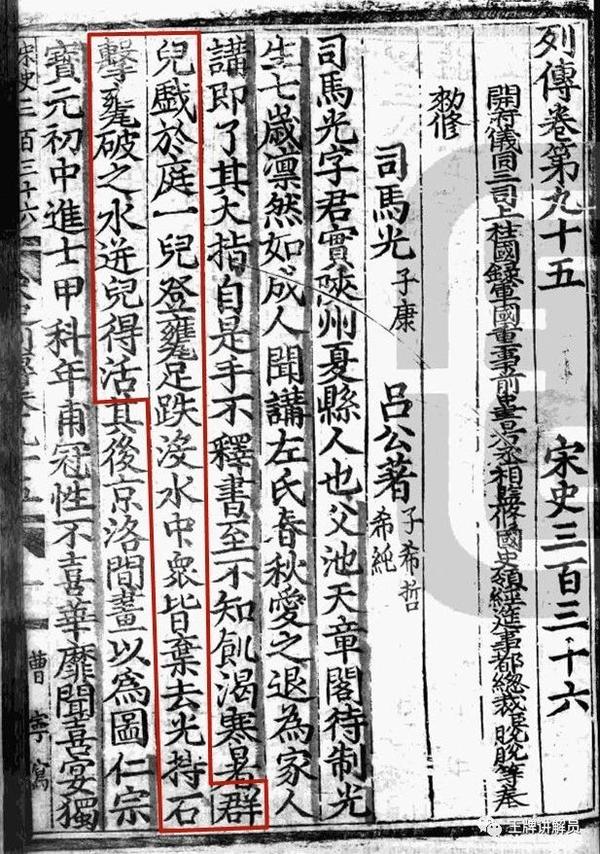 列傳卷第九十五 宋史三百三十六
開府儀同三司上柱國錄軍國重事前中書右丞相監修國史領經筵事都總裁臣脫脫等奉
勑修
司馬光 子康 呂公著 子希哲 希純
司馬光字君實陝州夏縣人也父池天章閣待制光
生七歲凛然如成人聞講左氏春秋愛之退為家人
講即了其大指自是手不釋書至不知飢渴寒暑群
兒戲於庭一兒登甕足跌没水中衆皆棄去光持石
擊甕破之水迸兒得活其後京洛間畫以爲圖仁宗
寶元初中進士甲科年甫冠性不喜華靡聞喜宴獨
宋史三百三十六
曹寧寫
王牌讲解员